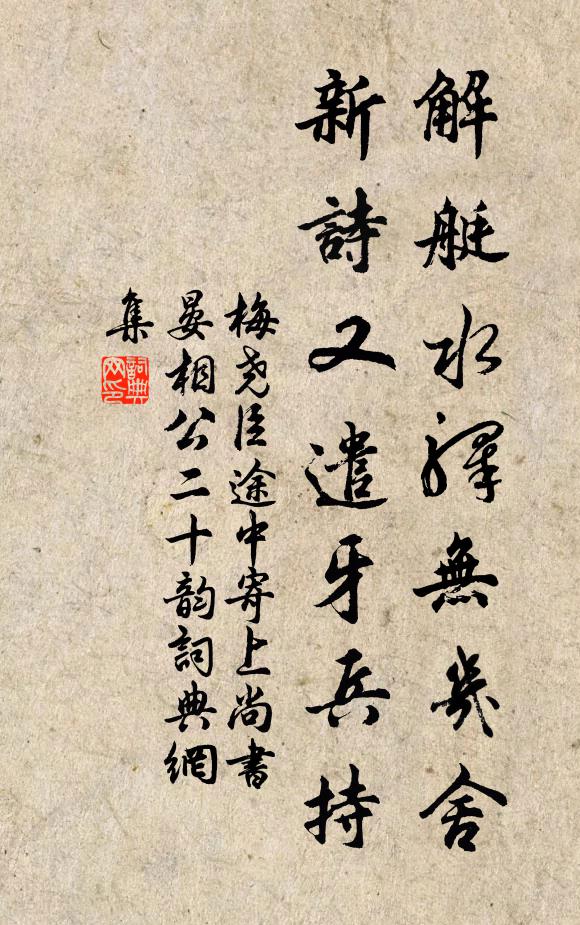 解艇水驛無幾舍
新詩又遣牙兵持
梅堯臣途中寄上尚書
晏相公二十韵詞典網
集
詞典
网印